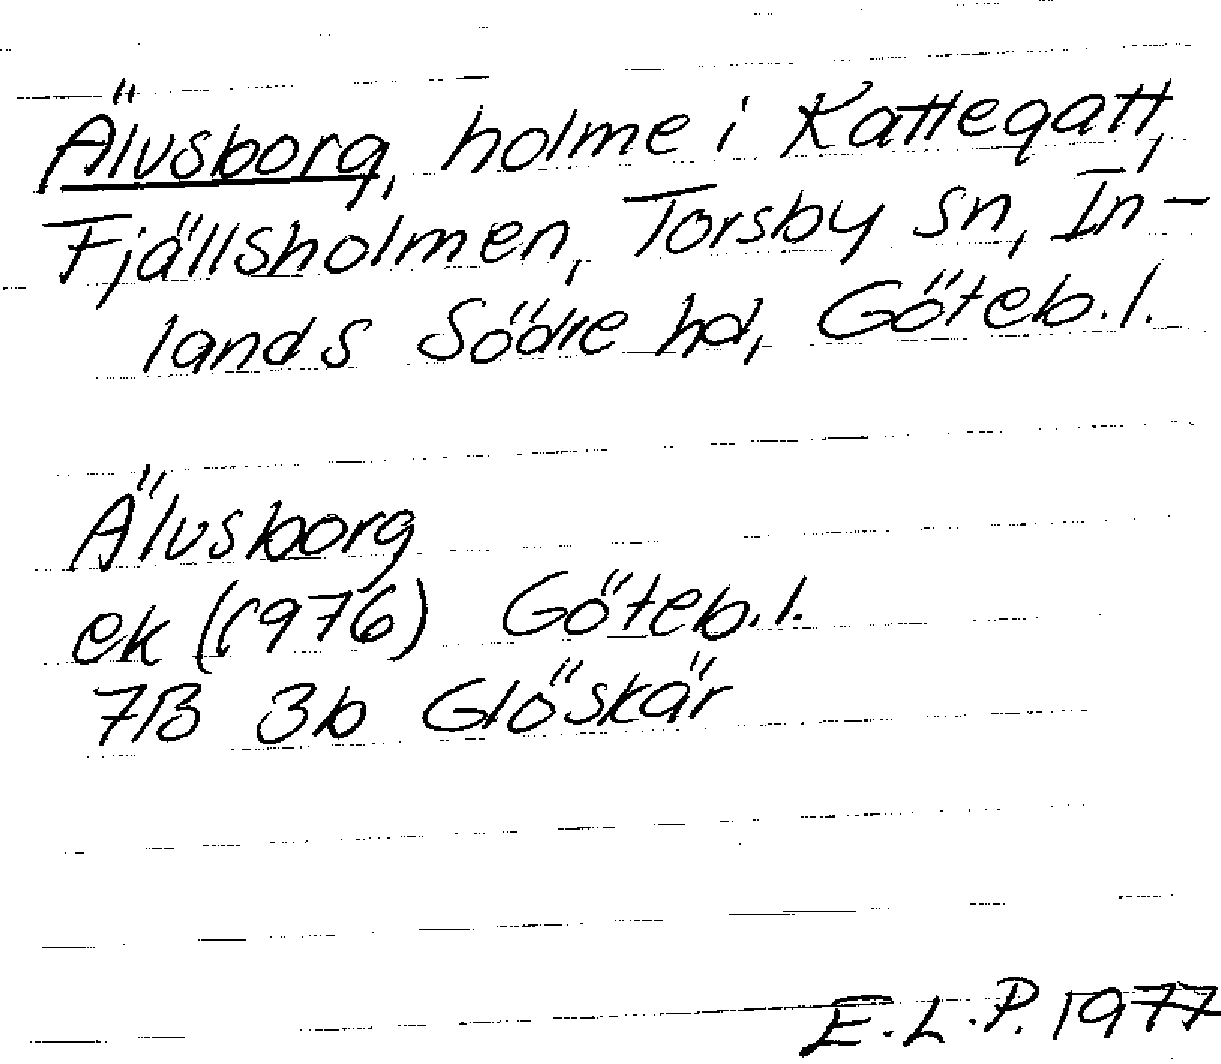 Älvsborg, holme i Kattegatt,
Fjällsholmen, Torsby sn, In-
lands Södre hd, Göteb.l.
Älvsborg
ek (1976) Göteb.l.
7B 3b Glöskär
E.L.P. 1977